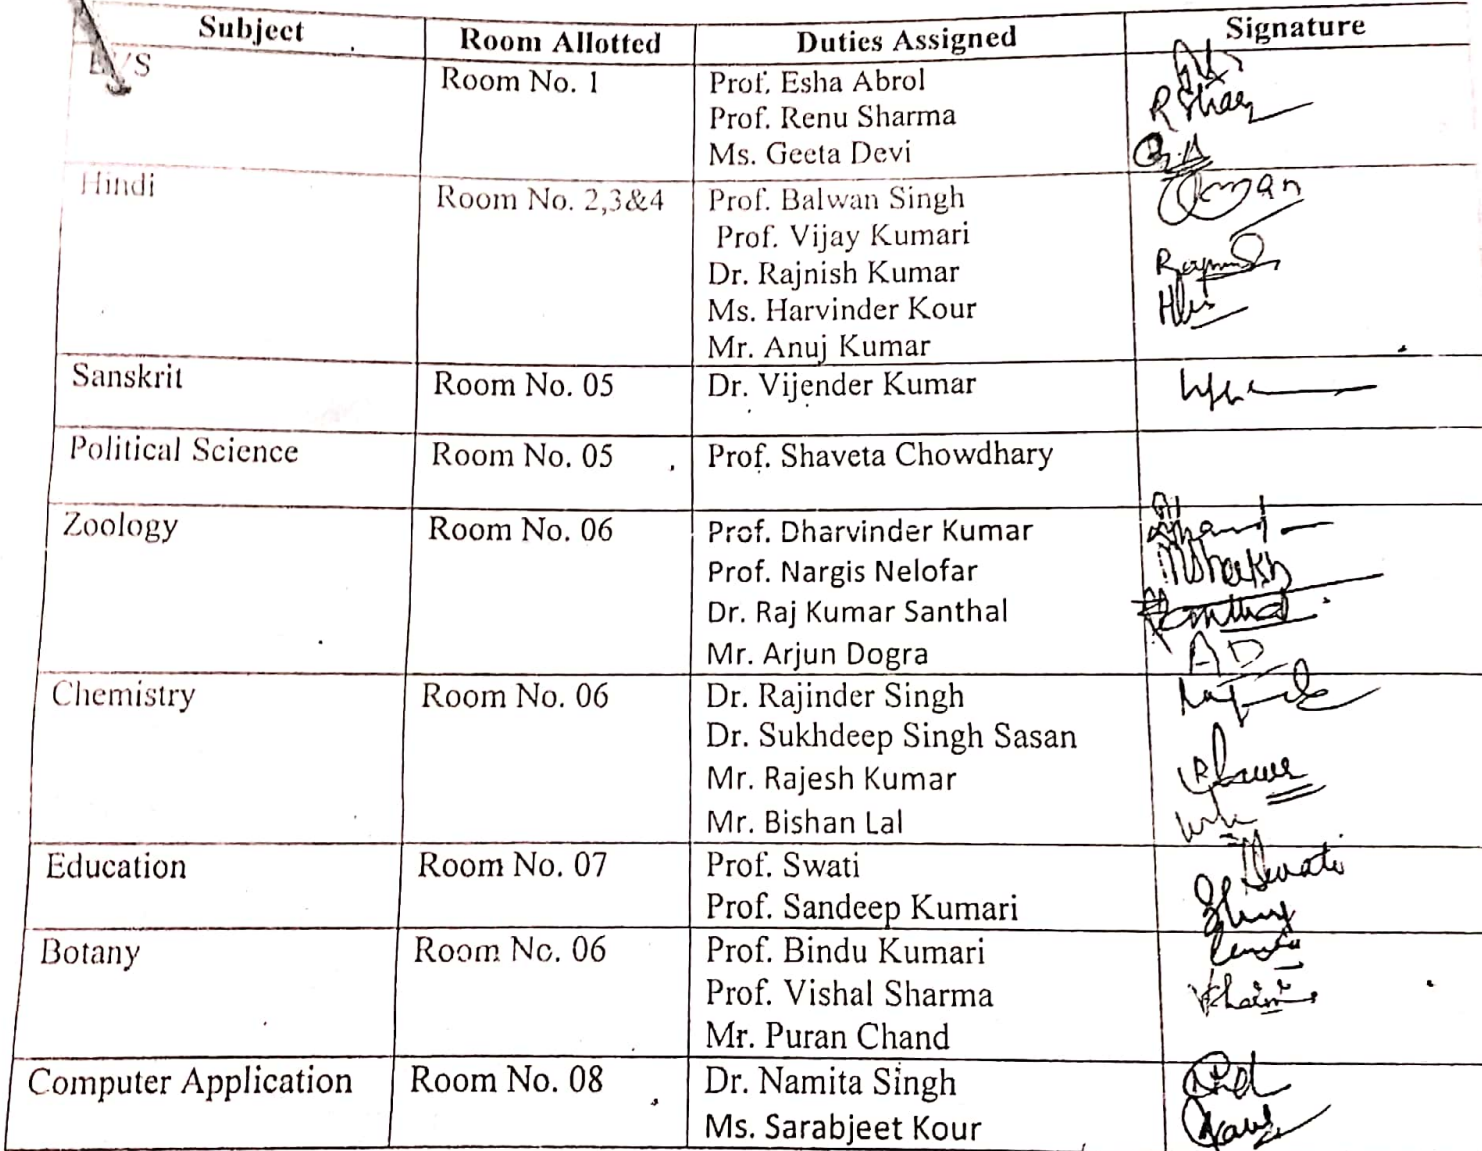 Subject Room Allotted Duties Assigned Signature
EVS Room No. 1 Prof. Esha Abrol
Prof. Renu Sharma
Ms. Geeta Devi
Hindi Room No. 2,3&4 Prof. Balwan Singh
Prof. Vijay Kumari
Dr. Rajnish Kumar
Ms. Harvinder Kour
Mr. Anuj Kumar
Sanskrit Room No. 05 Dr. Vijender Kumar
Political Science Room No. 05 Prof. Shaveta Chowdhary
Zoology Room No. 06 Prof. Dharvinder Kumar
Prof. Nargis Nelofar
Dr. Raj Kumar Santhal
Mr. Arjun Dogra AD
Chemistry Room No. 06 Dr. Rajinder Singh
Dr. Sukhdeep Singh Sasan
Mr. Rajesh Kumar
Mr. Bishan Lal
Education Room No. 07 Prof. Swati Swati
Prof. Sandeep Kumari
Botany Room No. 06 Prof. Bindu Kumari
Prof. Vishal Sharma
Mr. Puran Chand
Computer Application Room No. 08 Dr. Namita Singh
Ms. Sarabjeet Kour